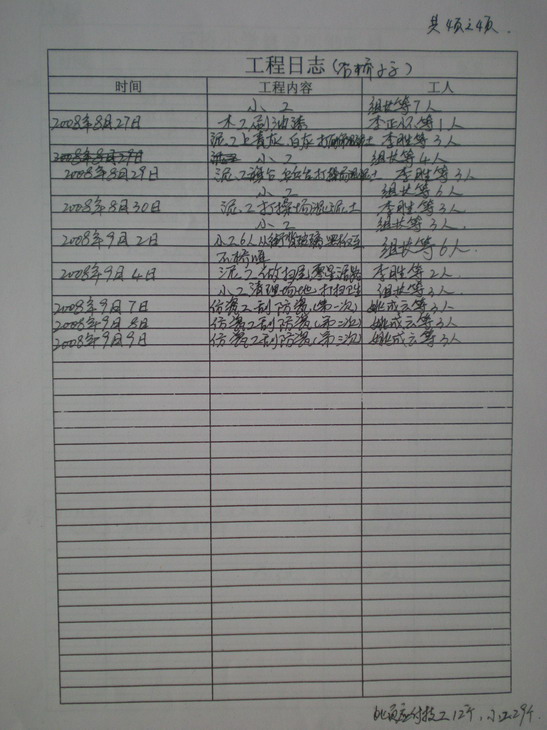 共4页之4页.
工程日志(石桥小学)
时间 工程内容 工人
小工 组长等7人
2008年8月27日 木工刷油漆 李正怀等1人
泥工上青灰、白灰 李胜等3人
2008年8月29日 小工 组长等4人
2008年8月29日 泥工 李胜等3人
小工 组长等6人
2008年8月30日 泥工打操场混泥土 李胜等3人
小工 组长等3人
2008年9月2日 小工6人从 组长等6人.
2008年9月4日 泥工做 李胜等2人.
小工清理场地、打扫 组长等3人
2008年9月7日 仿瓷工刮仿瓷(第一次) 姚成云等3人
2008年9月8日 仿瓷工刮仿瓷(第二次) 姚成云等3人
2008年9月9日 仿瓷工刮仿瓷(第三次) 姚成云等3人
此页应付技工12个,小工29个.